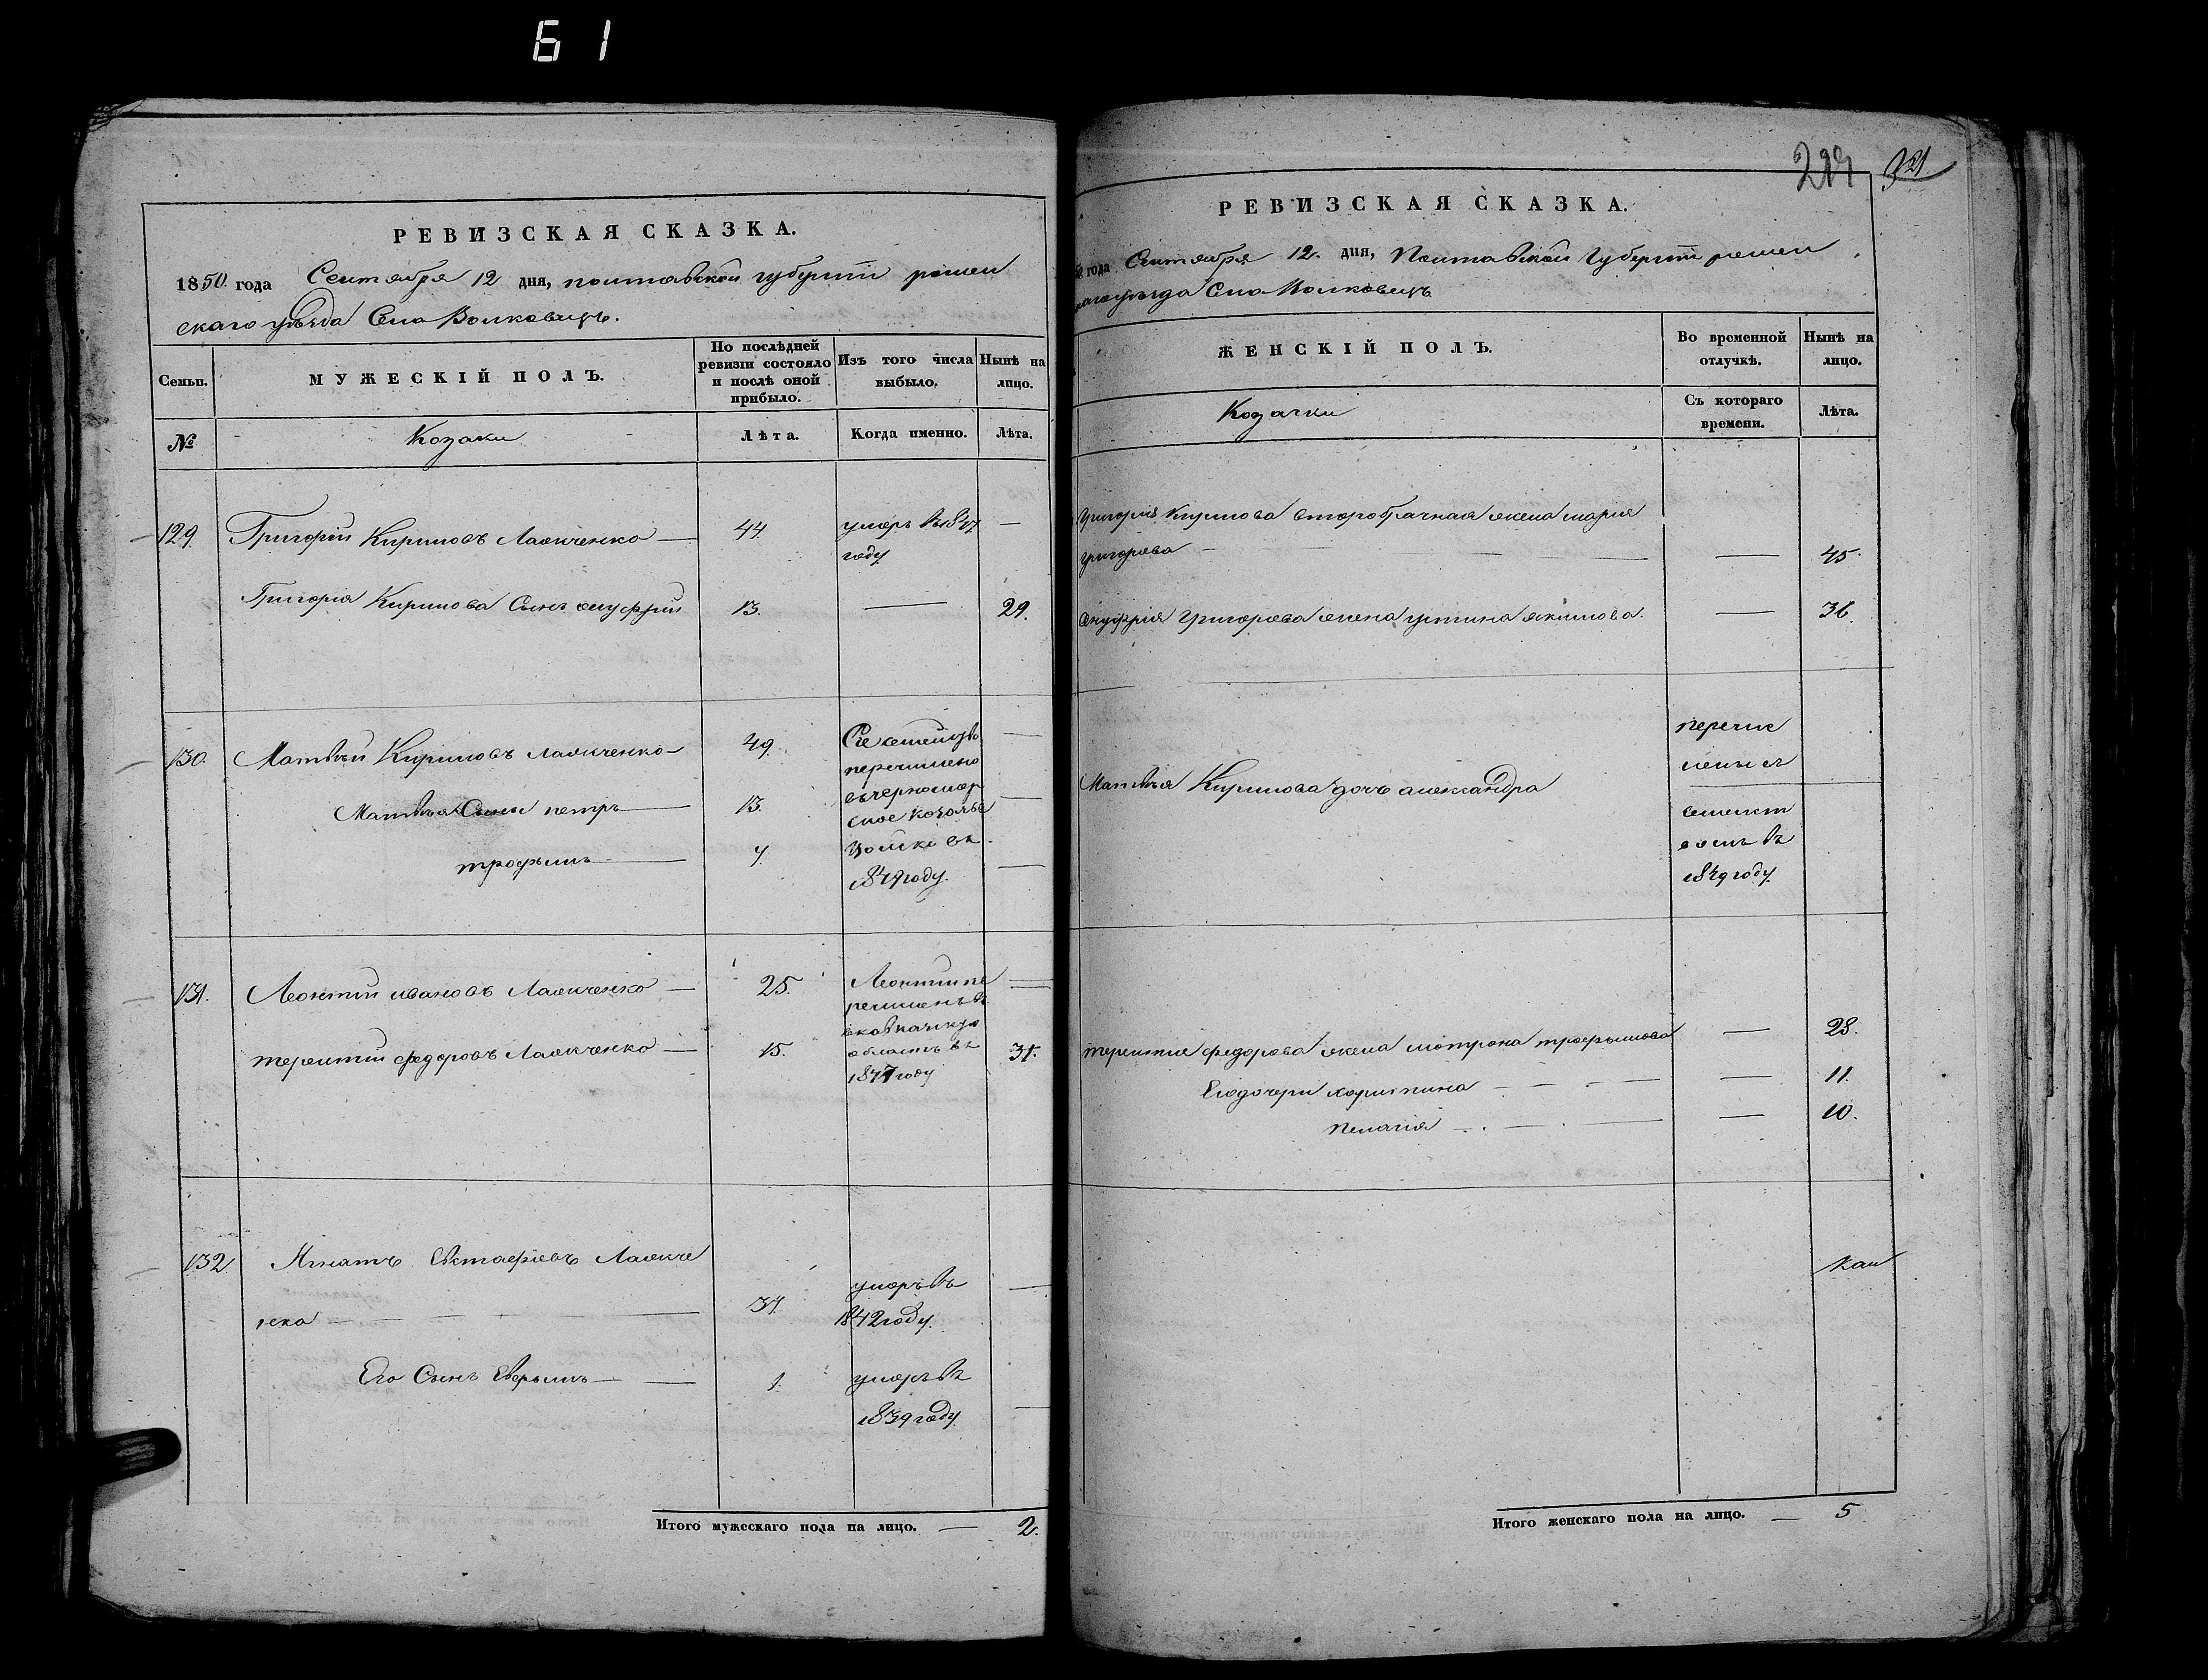 61
РЕВИЗСКАЯ СКАЗКА.
1850 года Сентября 12 дня, полтавской губерніи ромен
скаго уѣзда Села Волковецъ.
Семьи.
МУЖЕСКІЙ ПОЛЪ.
По послѣдней ревизіи состояло и послѣ оной прибыло.
Изъ того числа выбыло.
Нынѣ на лицо.
№
Козаки
Лѣта.
Когда именно.
Лѣта.
129. Григорій Кириловъ Лаокченко — 44. умеръ въ 1847 году —
Григорія Кирилова Сынъ онуфрій 13. — 29.
130. Матвѣй Кириловъ Лаокченко — 49. Сіе семейство —
перечислено
Матвѣя Сыны петръ — 13. въ черномор —
ское козачье
трофымъ — 7. войско въ —
1849 году.
131. Леонтій ивановъ Лаокченко — 25. Леонтій пе —
речисленъ въ
кавказскую
терентій федоровъ Лаокченко — 15. область въ 31.
1847 году
132. Игнатъ Евстафіевъ Лаокче
нко — 37. умеръ въ —
1842 году.
Его Сынъ — 1. умеръ въ
1839 году. —
Итого мужескаго пола на лицо. — 2.
321
РЕВИЗСКАЯ СКАЗКА.
года Сентября 12. дня, Полтавской Губерніи ромен
скаго уѣзда Села Волковецъ
ЖЕНСКІЙ ПОЛЪ.
Во временной отлучкѣ.
Нынѣ на лицо.
Козачки
Съ котораго времени.
Лѣта.
Григорія Кирилова второбрачная жена марія
григорова — — 45.
онуфрія Григорова жена устина якимова. — 36.
перечис
лены съ
Матвѣя Кирилова дочь александра
семейст
вомъ въ
1849 году
терентія федорова жена мотрона трофымова — 28.
Его дочери харитина — — 11.
пелагія — — 10.
Итого женскаго пола на лицо. — 5